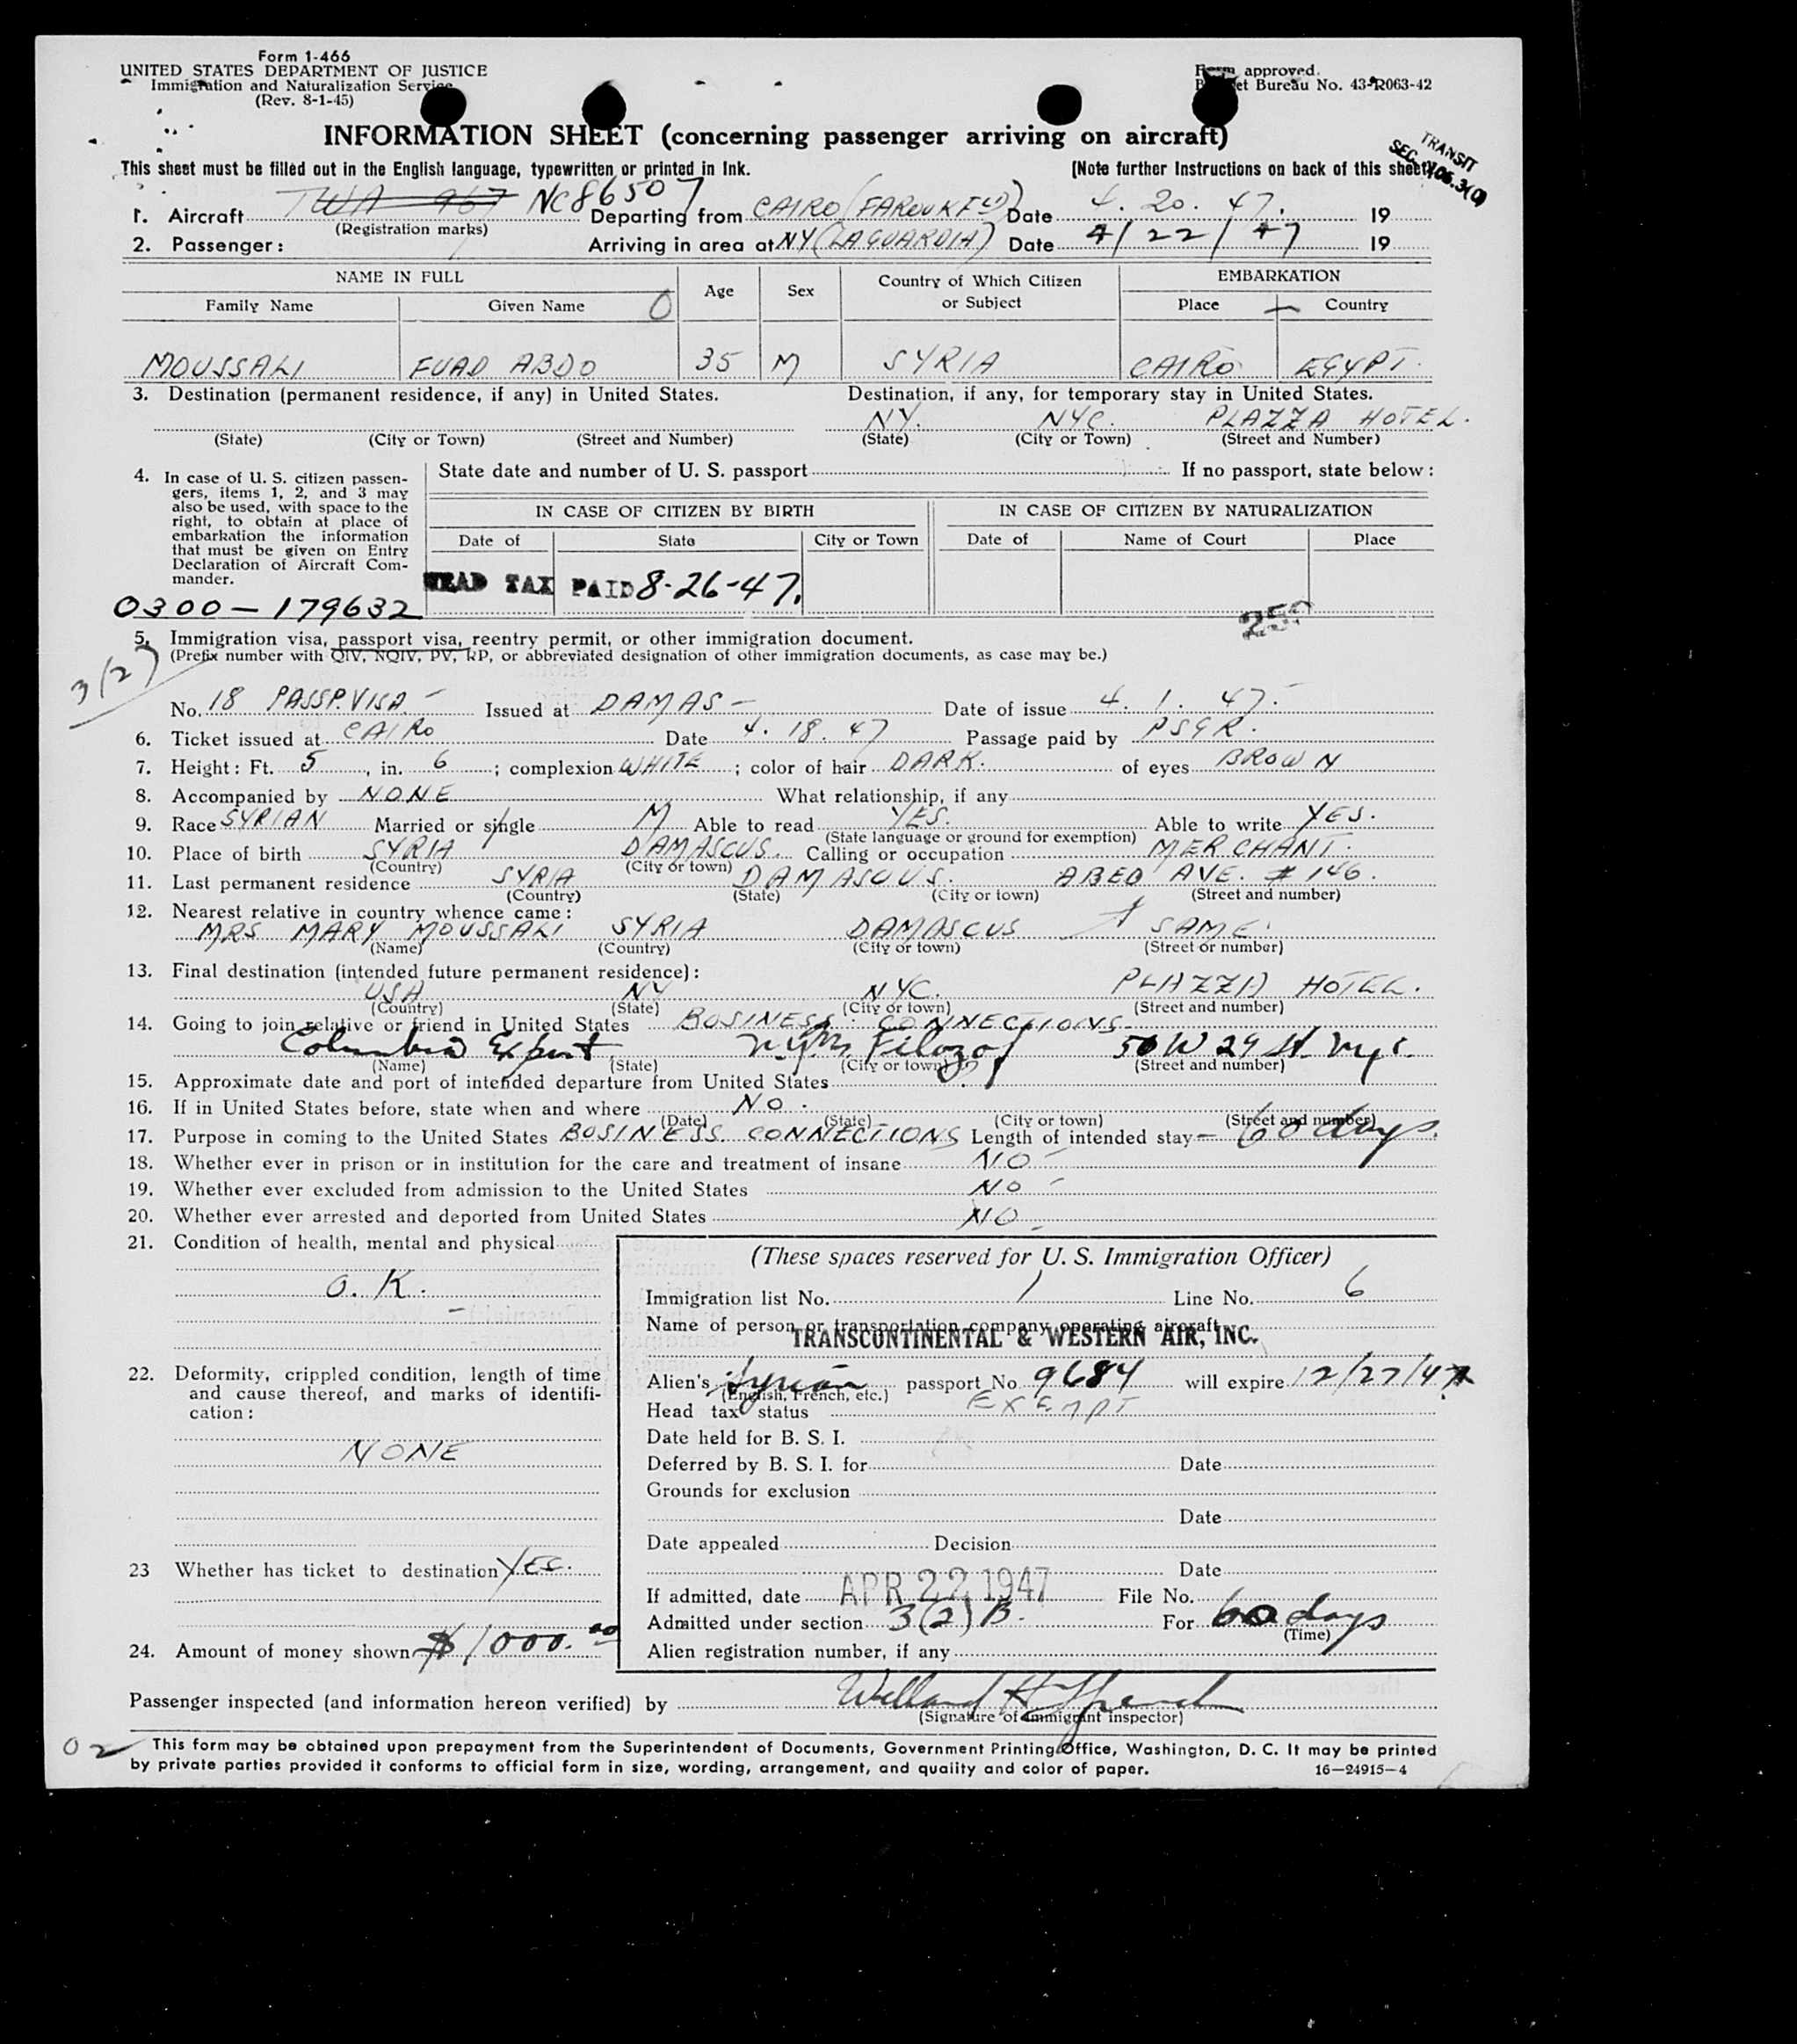 Form 1-466
UNITED STATES DEPARTMENT OF JUSTICE
Immigration and Naturalization Service
(Rev. 8-1-45)
Form approved.
Budget Bureau No. 43-R063-42
INFORMATION SHEET (concerning passenger arriving on aircraft)
TRANSIT
SEC.
This sheet must be filled out in the English language, typewritten or printed in Ink. [Note further Instructions on back of this sheet]
1. Aircraft TWA 967 NC86507 Departing from CAIRO (FAROUK Date 4. 20. 47. 19
(Registration marks)
2. Passenger: Arriving in area at NY (LAGUARDIA) Date 4/22/47 19
NAME IN FULL Age Sex Country of Which Citizen or Subject EMBARKATION
Family Name Given Name Place Country
MOUSSALI FUAD ABDO 35 M SYRIA CAIRO EGYPT.
3. Destination (permanent residence, if any) in United States. Destination, if any, for temporary stay in United States.
NY. NYC. PLAZZA HOTEL.
(State) (City or Town) (Street and Number) (State) (City or Town) (Street and Number)
4. In case of U. S. citizen passen-
gers, items 1, 2, and 3 may
also be used, with space to the
right, to obtain at place of
embarkation the information
that must be given on Entry
Declaration of Aircraft Com-
mander.
State date and number of U. S. passport If no passport, state below:
IN CASE OF CITIZEN BY BIRTH IN CASE OF CITIZEN BY NATURALIZATION
Date of State City or Town Date of Name of Court Place
HEAD TAX PAID 8-26-47.
0300-179632
5. Immigration visa, passport visa, reentry permit, or other immigration document.
(Prefix number with QIV, NQIV, PV, RP, or abbreviated designation of other immigration documents, as case may be.)
3(2)
No. 18 PASSP. VISA - Issued at DAMAS - Date of issue 4. 1. 47.
6. Ticket issued at CAIRO Date 4. 18. 47 Passage paid by PSGR.
7. Height: Ft. 5, in. 6; complexion WHITE; color of hair DARK. of eyes BROWN
8. Accompanied by NONE What relationship, if any
9. Race SYRIAN Married or single M Able to read YES. Able to write YES.
(State language or ground for exemption)
10. Place of birth SYRIA DAMASCUS. Calling or occupation MERCHANT.
(Country) (City or town)
11. Last permanent residence SYRIA DAMASCUS. ABED AVE. # 146.
(Country) (State) (City or town) (Street and number)
12. Nearest relative in country whence came:
MRS MARY MOUSSALI SYRIA DAMASCUS SAME.
(Name) (Country) (City or town) (Street or number)
13. Final destination (intended future permanent residence):
USA NY NYC. PLAZZA HOTEL.
(Country) (State) (City or town) (Street and number)
14. Going to join relative or friend in United States BUSINESS CONNECTIONS
Columbia Export 50 W 29 St. nyc.
(Name) (State) (City or town) (Street and number)
15. Approximate date and port of intended departure from United States
16. If in United States before, state when and where NO.
(Date) (State) (City or town) (Street and number)
17. Purpose in coming to the United States BUSINESS CONNECTIONS Length of intended stay - 60 days.
18. Whether ever in prison or in institution for the care and treatment of insane NO
19. Whether ever excluded from admission to the United States NO
20. Whether ever arrested and deported from United States NO
21. Condition of health, mental and physical
O. K.
22. Deformity, crippled condition, length of time
and cause thereof, and marks of identifi-
cation:
NONE
23 Whether has ticket to destination YES.
24. Amount of money shown $1000.00
(These spaces reserved for U. S. Immigration Officer)
Immigration list No. 1 Line No. 6
Name of person or transportation company operating aircraft
TRANSCONTINENTAL & WESTERN AIR, INC.
Alien's Syrian passport No. 9684 will expire 12/27/47
(English, French, etc.)
Head tax status EXEMPT
Date held for B. S. I.
Deferred by B. S. I. for Date
Grounds for exclusion
Date
Date appealed Decision
Date
If admitted, date APR 22 1947 File No.
Admitted under section 3(2) B. For 60 days
(Time)
Alien registration number, if any
Passenger inspected (and information hereon verified) by
(Signature of immigrant inspector)
02
This form may be obtained upon prepayment from the Superintendent of Documents, Government Printing Office, Washington, D. C. It may be printed
by private parties provided it conforms to official form in size, wording, arrangement, and quality and color of paper. 16-24915-4